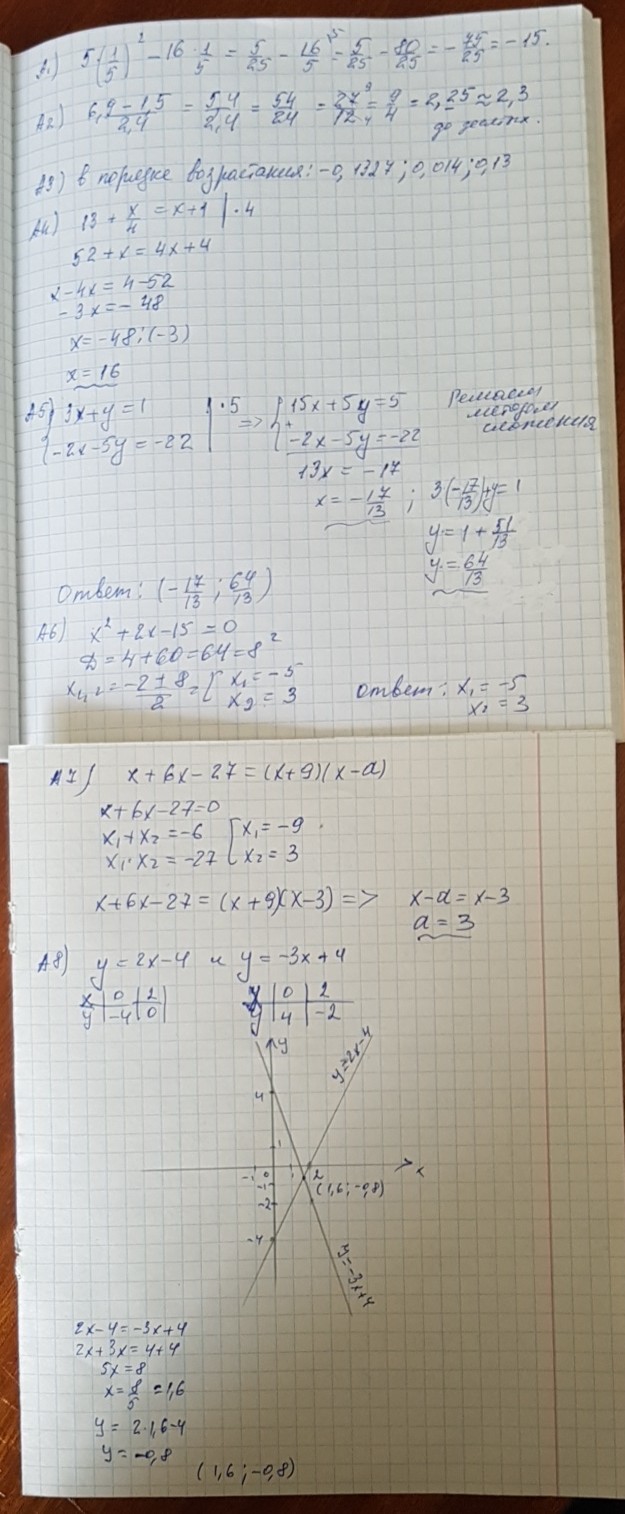 А1) 5(1/5)² − 16 · 1/5 = 5/25 − 16/5 = 5/25 − 80/25 = −75/25 = −15.
А2) 6,9−1,5/2,4 = 5,4/2,4 = 54/24 = 27/12 = 9/4 = 2,25 ≈ 2,3
до десятых.
А3) в порядке возрастания: −0,1327; 0,014; 0,13
А4) 13 + x/4 = x+1 | ·4
52+x = 4x+4
x−4x = 4−52
−3x = −48
x = −48:(−3)
x = 16
А5) { 3x+y=1 | ·5 => { 15x+5y=5 Решаем методом сложения
{ −2x−5y=−22 + −2x−5y=−22
13x = −17
x = −17/13 ; 3(−17/13)+y=1
y = 1 + 51/13
y = 64/13
Ответ: (−17/13 ; 64/13)
А6) x² + 2x − 15 = 0
D = 4+60 = 64 = 8²
x₁,₂ = −2±8/2 = [ x₁ = −5
x₂ = 3
Ответ: x₁ = −5
x₂ = 3
А7) x + 6x − 27 = (x+9)(x−a)
x+6x−27=0
x₁+x₂ = −6 [ x₁ = −9
x₁·x₂ = −27 [ x₂ = 3
x+6x−27 = (x+9)(x−3) => x−a = x−3
a = 3
А8) y = 2x−4 и y = −3x+4
x | 0 | 2 | x | 0 | 2
y | −4 | 0 | y | 4 | −2
y
y=2x−4
4
1
−1 0 1 2 x
−1 (1,6; −0,8)
−2
−4
y=−3x+4
2x−4=−3x+4
2x+3x=4+4
5x=8
x=8/5 =1,6
y = 2·1,6−4
y = −0,8
(1,6; −0,8)